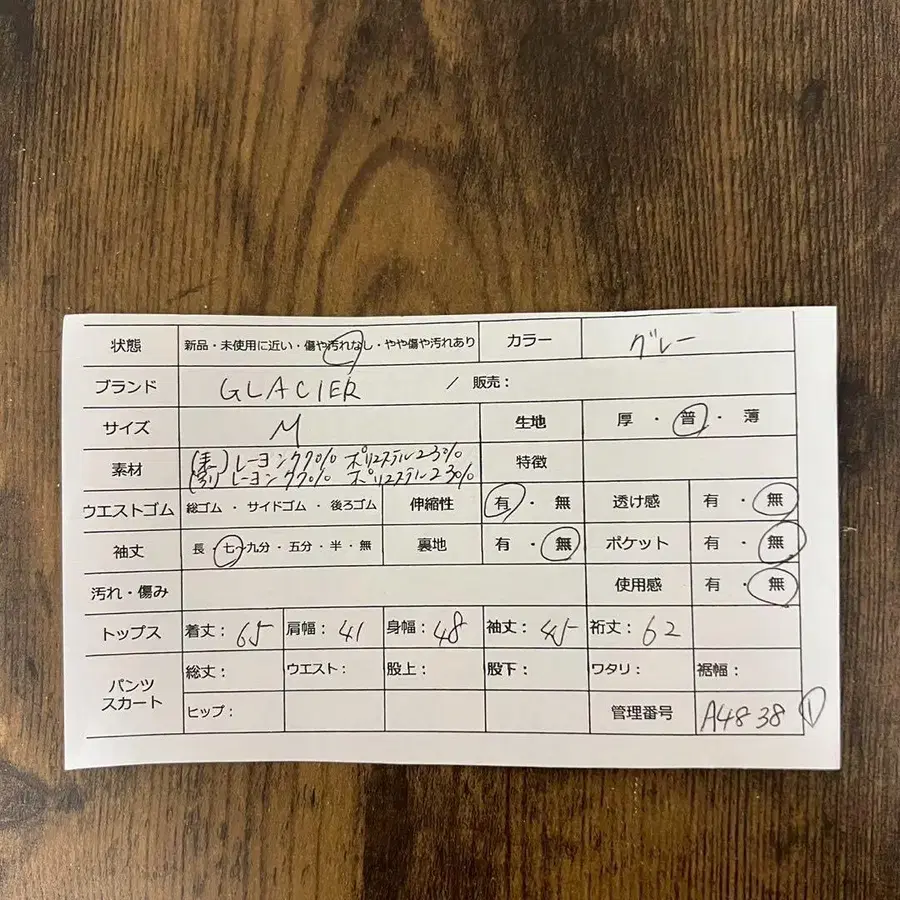 状態 新品・未使用に近い・傷や汚れなし・やや傷や汚れあり カラー グレー
ブランド GLACIER / 販売：
サイズ M 生地 厚・普・薄
素材 (表)レーヨン77% ポリエステル23% 特徴
(別)レーヨン77% ポリエステル23%
ウエストゴム 総ゴム ・ サイドゴム ・ 後ろゴム 伸縮性 有・無 透け感 有・無
袖丈 長・七~九分・五分・半・無 裏地 有・無 ポケット 有・無
汚れ・傷み 使用感 有・無
トップス 着丈：65 肩幅：41 身幅：48 袖丈：45 裄丈：62
パンツ スカート 総丈： ウエスト： 股上： 股下： ワタリ： 裾幅：
ヒップ： 管理番号 A4838 ①